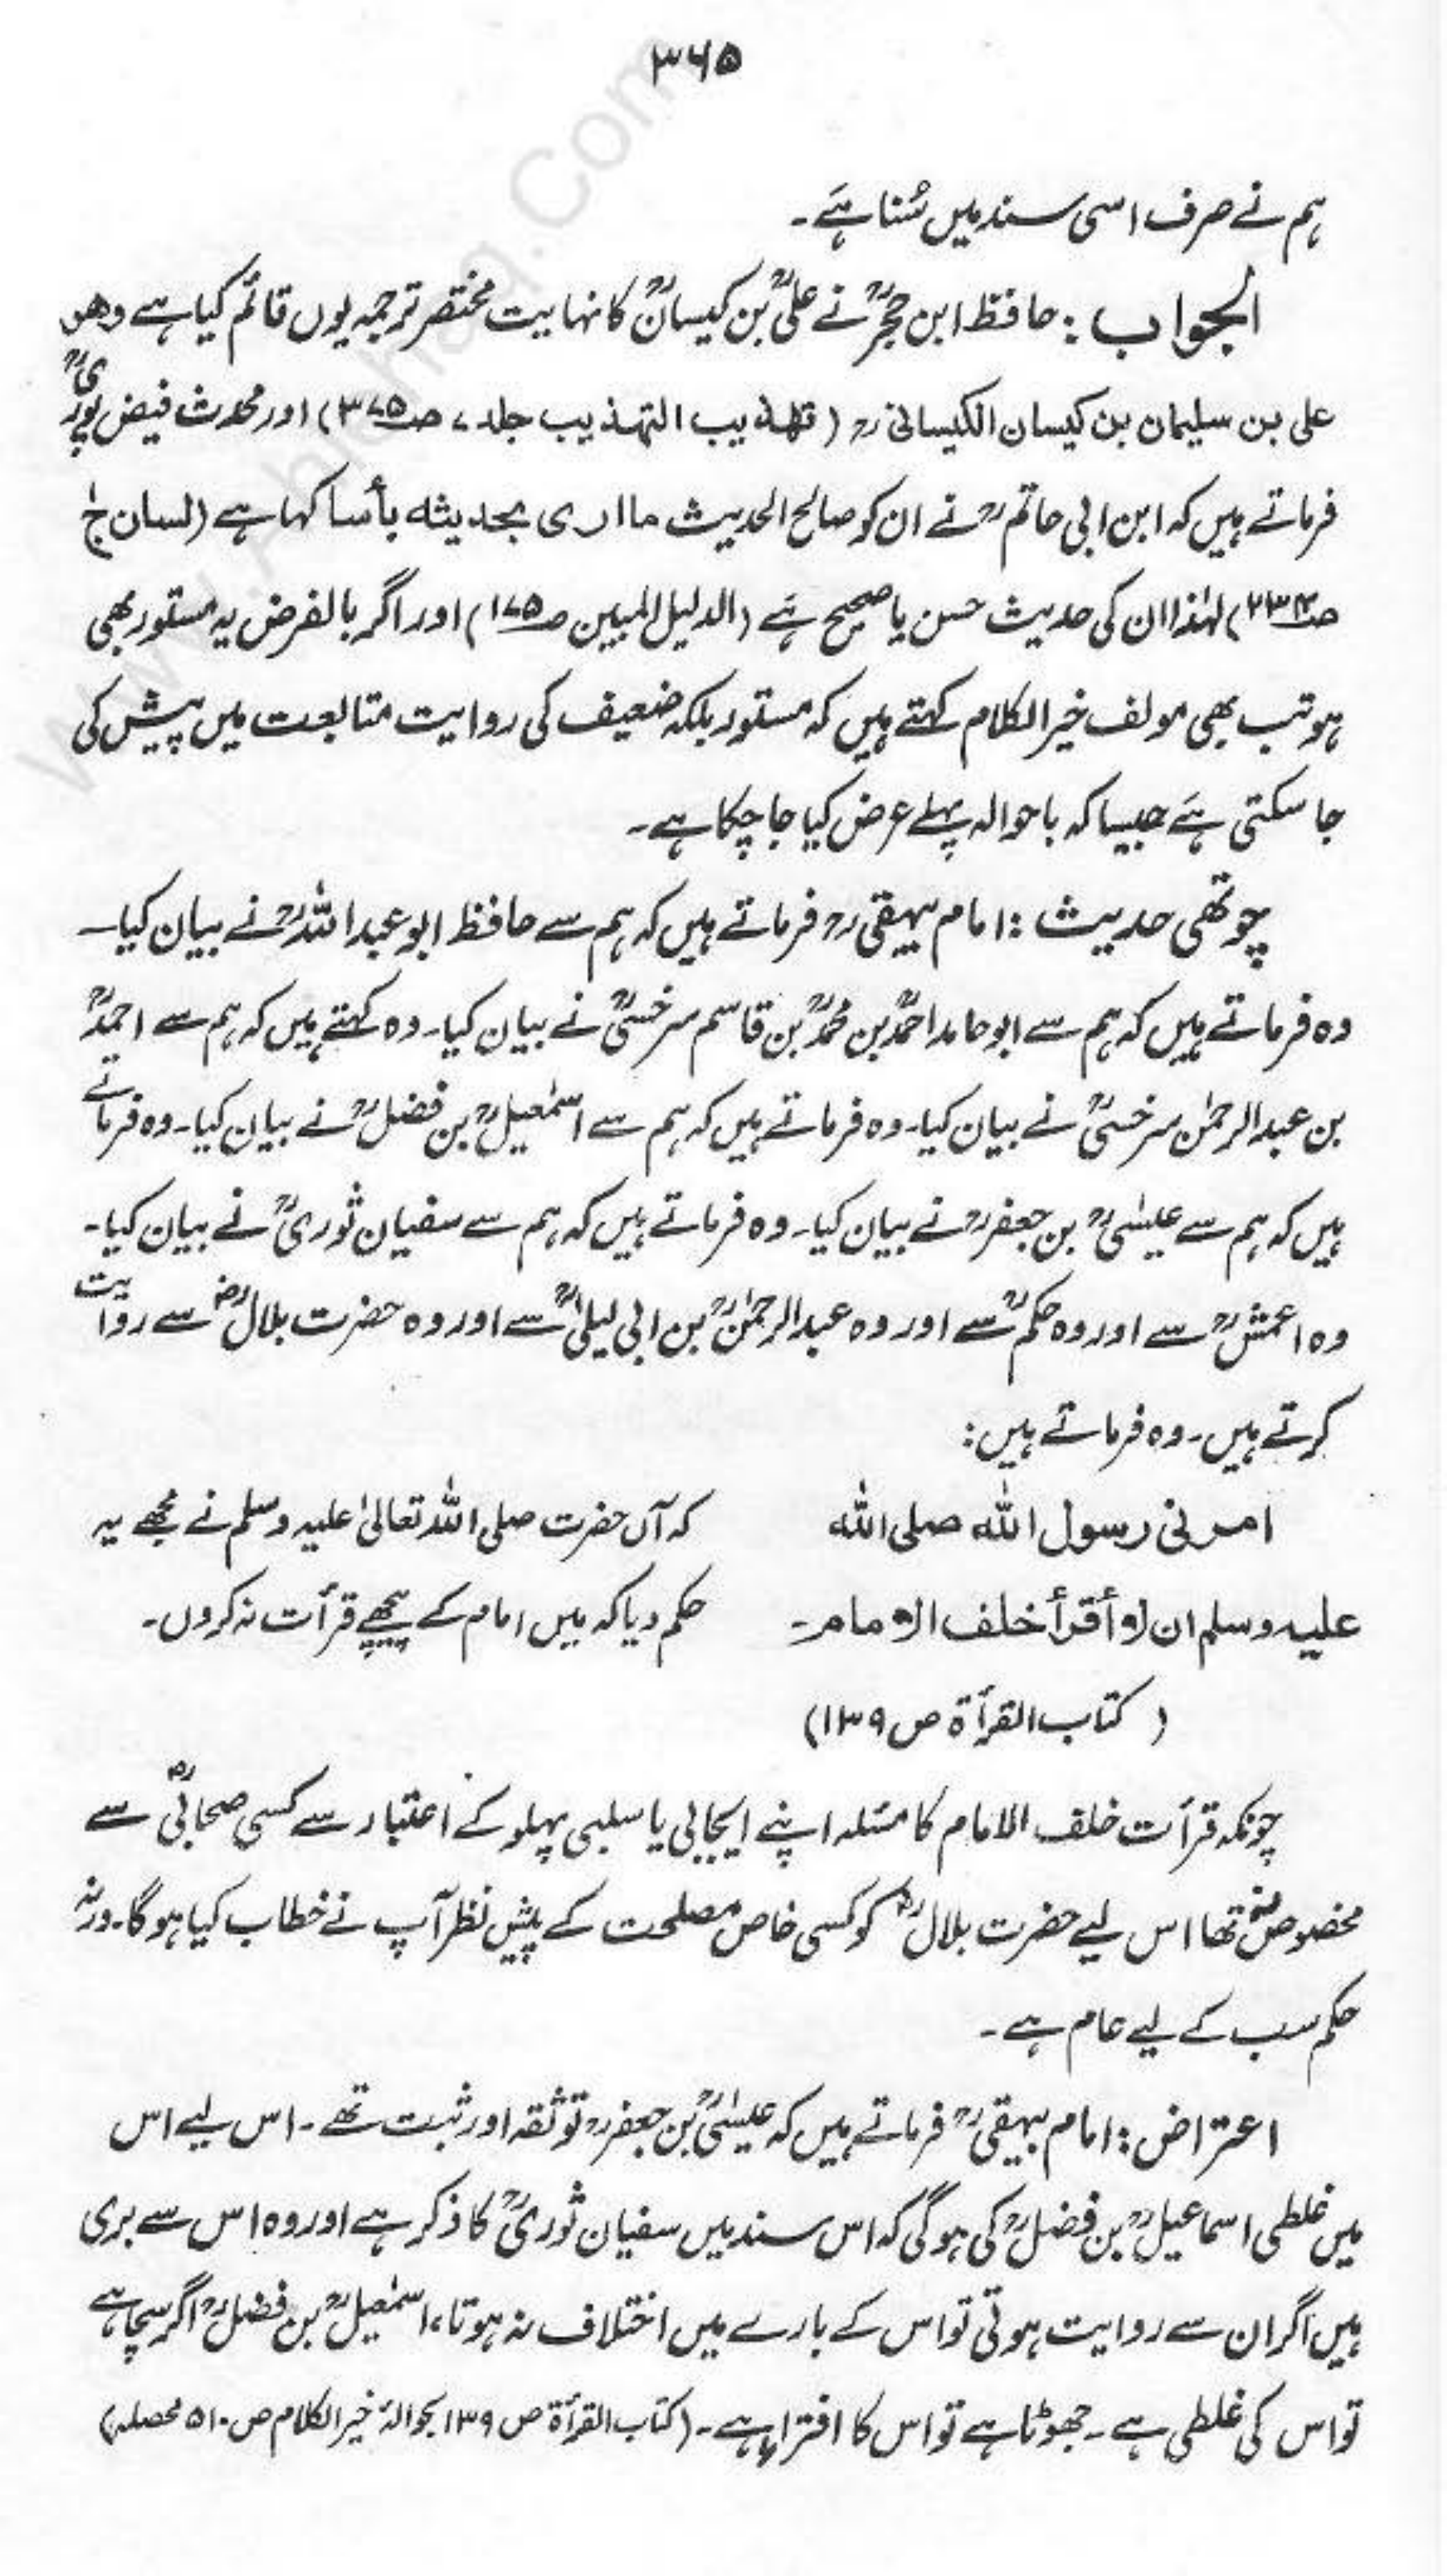 ۳۶۵
ہم نے صرف اسی سند میں سُنا ہے۔
الجواب: حافظ ابن حجرؒ نے علیؒ بن کیسانؒ کا نہایت مختصر ترجمہ یوں قائم کیا ہے وھو
علی بن سلیمان بن کیسان الکیسانیؒ (تھذیب التہذیب جلد ۷ صـ۳۷۵) اور محدث فیض پوریؒ
فرماتے ہیں کہ ابن ابی حاتمؒ نے ان کو صالح الحدیث ما اری بحدیثہ بأسا کہا ہے (لسان ج
صـ۲۳۴) لہٰذا ان کی حدیث حسن یا صحیح ہے (الدلیل المبین صـ۱۷۵) اور اگر بالفرض یہ مستور بھی
ہو تب بھی مولف خیر الکلام کہتے ہیں کہ مستور بلکہ ضعیف کی روایت متابعت میں پیش کی
جا سکتی ہے جیسا کہ باحوالہ پہلے عرض کیا جا چکا ہے۔
چوتھی حدیث: امام بیہقیؒ فرماتے ہیں کہ ہم سے حافظ ابو عبد اللہؒ نے بیان کیا۔
وہ فرماتے ہیں کہ ہم سے ابو حامد احمدؒ بن محمدؒ بن قاسم سرخسیؒ نے بیان کیا۔ وہ کہتے ہیں کہ ہم سے احمدؒ
بن عبد الرحمٰن سرخسیؒ نے بیان کیا۔ وہ فرماتے ہیں کہ ہم سے اسمٰعیلؒ بن فضلؒ نے بیان کیا۔ وہ فرماتے
ہیں کہ ہم سے عیسٰیؒ بن جعفرؒ نے بیان کیا۔ وہ فرماتے ہیں کہ ہم سے سفیان ثوریؒ نے بیان کیا۔
وہ اعمشؒ سے اور وہ حکمؒ سے اور وہ عبد الرحمٰنؒ بن ابی لیلیٰؒ سے اور وہ حضرت بلالؓ سے روایت
کرتے ہیں۔ وہ فرماتے ہیں:
امرنی رسول اللہ صلی اللہ
علیہ وسلم ان لا أقرأ خلف الامام۔
(کتاب القرأة ص ۱۳۹)
کہ آں حضرت صلی اللہ تعالیٰ علیہ وسلم نے مجھے یہ
حکم دیا کہ میں امام کے پیچھے قرأت نہ کروں۔
چونکہ قرأت خلف الامام کا مسئلہ اپنے ایجابی یا سلبی پہلو کے اعتبار سے کسی صحابیؓ سے
مخصوص نہ تھا اس لیے حضرت بلالؓ کو کسی خاص مصلحت کے پیش نظر آپ نے خطاب کیا ہو گا۔ ورنہ
حکم سب کے لیے عام ہے۔
اعتراض: امام بیہقیؒ فرماتے ہیں کہ عیسٰیؒ بن جعفرؒ تو ثقہ اور ثبت تھے۔ اس لیے اس
میں غلطی اسماعیلؒ بن فضلؒ کی ہو گی کہ اس سند میں سفیان ثوریؒ کا ذکر ہے اور وہ اس سے بری
ہیں اگر ان سے روایت ہوتی تو اس کے بارے میں اختلاف نہ ہوتا، اسمٰعیلؒ بن فضلؒ اگر سچا ہے
تو اس کی غلطی ہے۔ جھوٹا ہے تو اس کا افترا ہے۔ (کتاب القرأة ص ۱۳۹ بحوالہٗ خیر الکلام ص ۵۱۰ محصلہ)